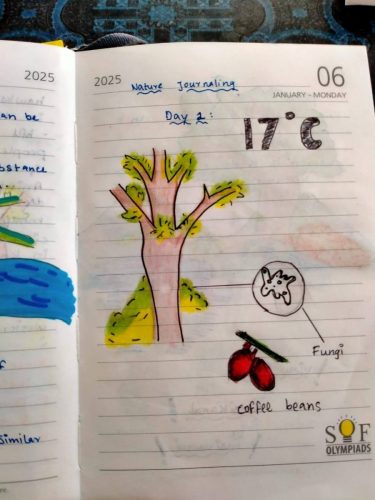 2025
an be
bstance
f
Similar
2025
06
JANUARY - MONDAY
Nature Journaling
Day 2:
17°C
Fungi
coffee beans
SOF
OLYMPIADS